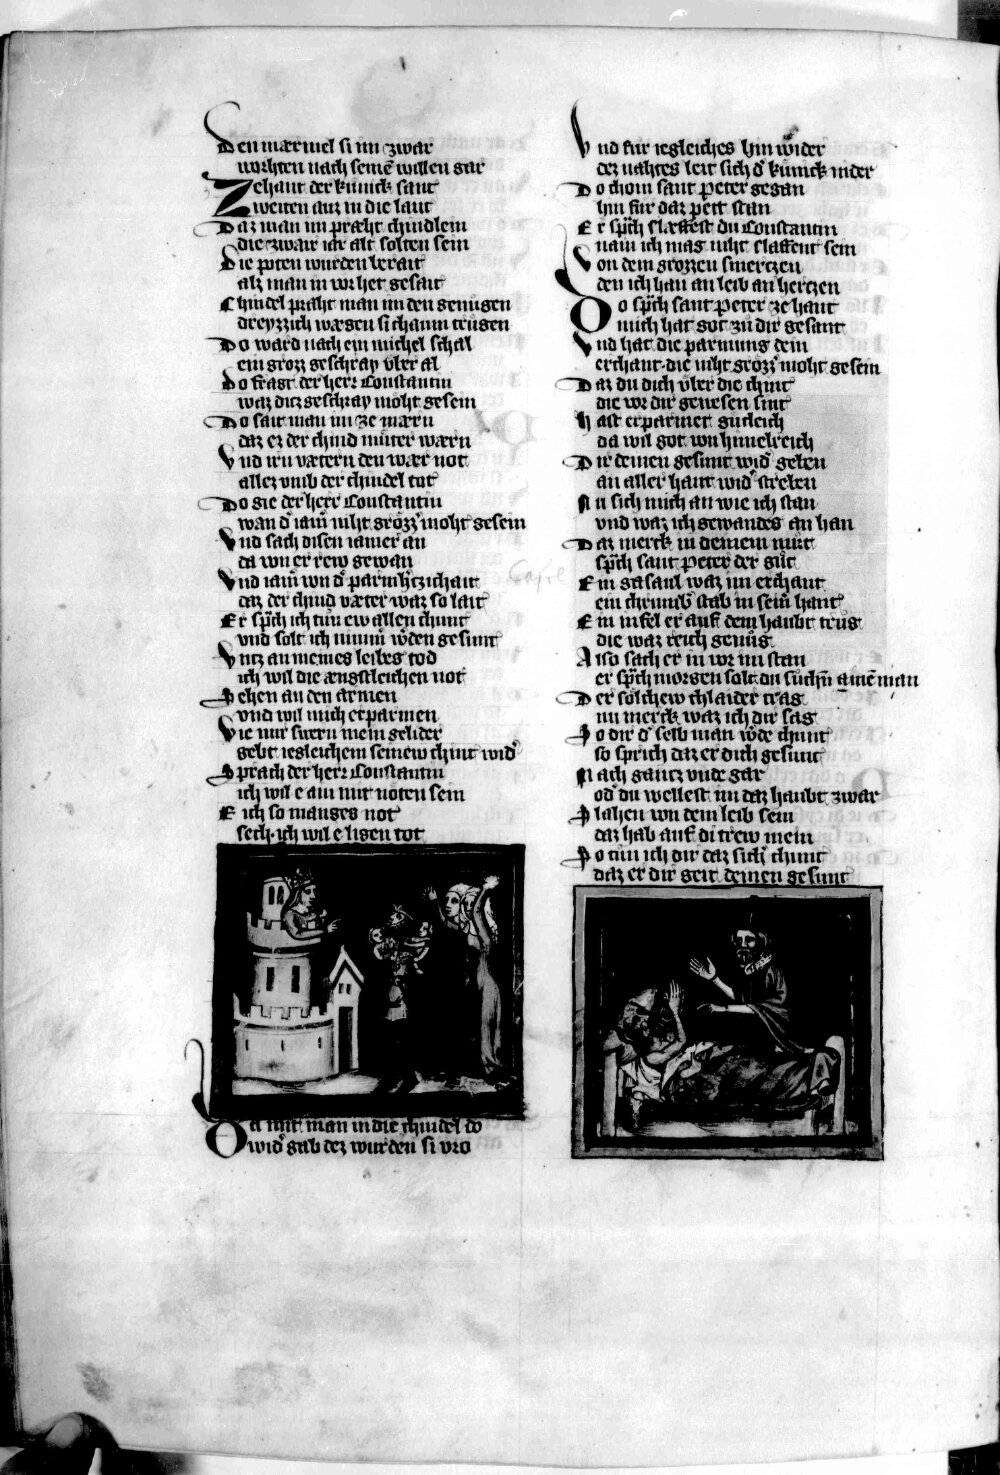 Den mærmel si im zwar
worhten nach seinē willen gar
Zehant der künick sant
Zweiten auz in die lant
Daz man im præht chindlein
die zwair iar alt solten sein
Die poten wurden berait
alz man in vor het gesait
Chindel praht man im den genůgen
dreyzzich wægen si chaum trůgen
Do ward nach ein michel schal
ein grozz geschray vber al
Do fragt der herr Constantin
waz diez geschray moht gesein
Do sait man im ze mærn
daz ez der chind můter wærn
Vnd irn vætern den wær not
allez vmb der chindel tot
Do gie der herr Constantin
wan d iam niht grözz moht gesein
Vnd sach disen iamer an
da von er rew gewan
Vnd iam von d parmhtzichait
daz der chind væter waz so lait
Er spch ich tůn ew allen chunt
vnd solt ich nimm wden gesunt
Vntz an meines leibes tod
ich wil die ængstleichen not
Sehen an den armen
vnd wil mich erparmen
Vie mir swern mein gelider
gebt iegleichem seinew chint wid
Sprach der herr Constantin
ich wil e ain mit nöten sein
E ich so manges not
sech · ich wil e ligen tot
Da mit man in die chindel do
wid gab dez wurden si vro
Vnd für iegleiches hin wider
dez nahtes leit sich d künick nider
Do chom sant Peter gegan
hin für daz pett stan
Er spch slæffest du Constantin
nain ich mag niht slaffent sein
Von dem grozzen smertzen
den ich han an leib an hertzen
Do spch sant Peter ze hant
mich hat got zů dir gesant
Vnd hat die parmung dein
erchant · die niht grözz moht gesein
Daz du dich vber die chint
die vor dir gewesen sint
Hast erparmet gütleich
da wil got von himelreich
Dir deinen gesunt wid geben
an aller hant wid streben
Nu sich mich an wie ich stan
vnd waz ich gewandes an han
Daz merck in deinem můt
spch sant Peter der gůt
Ein gasaul waz im erchant
ein chrumb stab in sein hant
Ein infel er auf dem haubt trůg
die waz reich genůg
Also sach er in vor im stan
er spch morgen solt du sůchn ainē man
Der sölchew chlaider trag
nu merck waz ich dir sag
So dir d selb man wde chunt
so sprich daz er dich gesunt
Mach gantz vnde gar
od du wellest im daz haubt zwar
Slahen von dem leib sein
daz hab auf di trew mein
So tůn ich dir daz sich chunt
daz er dir geit deinen gesunt